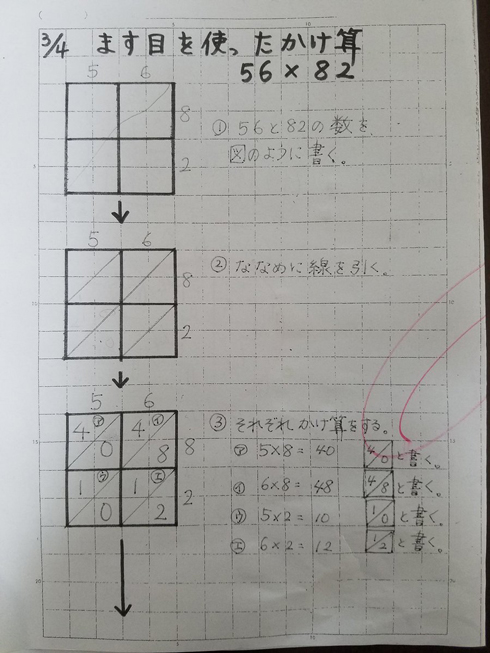 3/4 ます目を使ったかけ算
56×82
5 6
8
2
① 56と82の数を
図のように書く。
5 6
8
2
② ななめに線を引く。
5 6
4 ㋐ 0 4 ㋑ 8 8
1 ㋒ 0 1 ㋓ 2 2
③ それぞれかけ算をする。
㋐ 5×8=40 4/0 と書く。
㋑ 6×8=48 4/8 と書く。
㋒ 5×2=10 1/0 と書く。
㋓ 6×2=12 1/2 と書く。